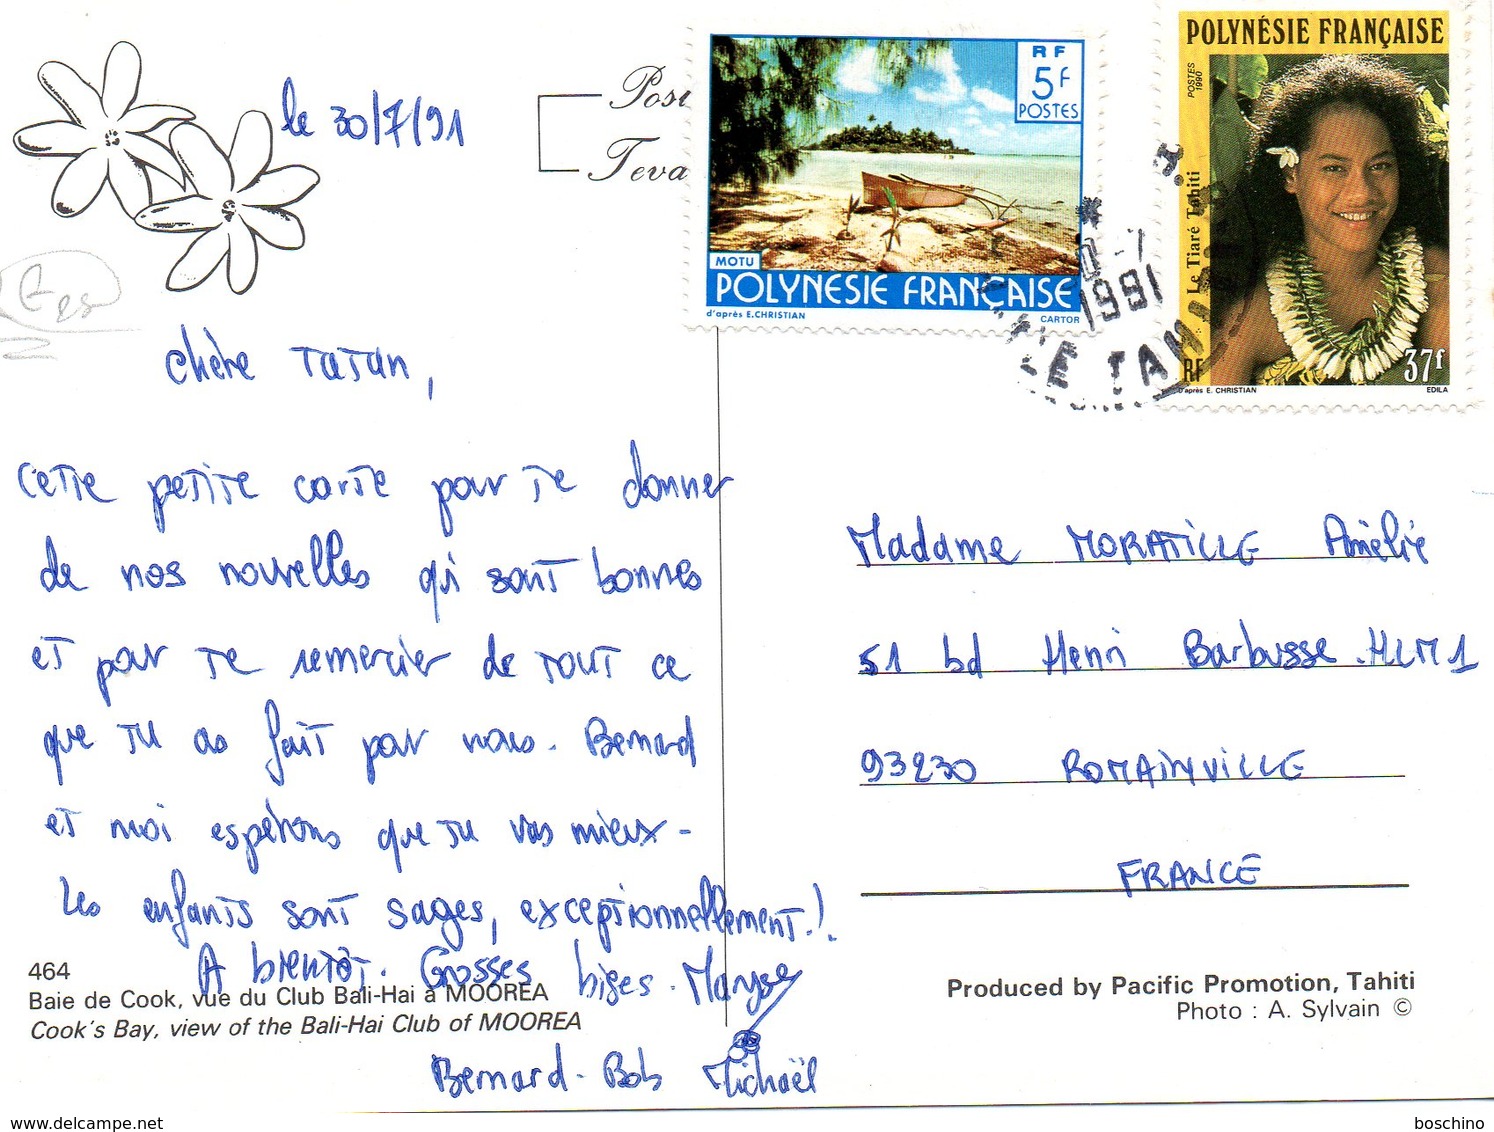 le 30/7/91
Post
Teva
RF
5f
POSTES
MOTU
POLYNESIE FRANÇAISE
d'après E.CHRISTIAN
CARTOR
POLYNÉSIE FRANÇAISE
POSTES 1990
Le Tiaré Tahiti
RF
37f
d'après E. CHRISTIAN
EDILA
1991
Chère TaTan,
Cette petite carte pour te donner
de nos nouvelles qui sont bonnes
et pour te remercier de tout ce
que tu as fait par nous. Bernard
et moi espérons que tu vas mieux-
Les enfants sont sages, exceptionnellement.!.
A bientôt. Grosses bises. Maryse
Bernard- Bob Michaël
Madame MORATILLE Amélie
51 bd Henri Barbusse.HLM1
93230 ROMAINVILLE
FRANCE
464
Baie de Cook, vue du Club Bali-Hai à MOOREA
Cook's Bay, view of the Bali-Hai Club of MOOREA
Produced by Pacific Promotion, Tahiti
Photo : A. Sylvain ©
www.delcampe.net
boschino